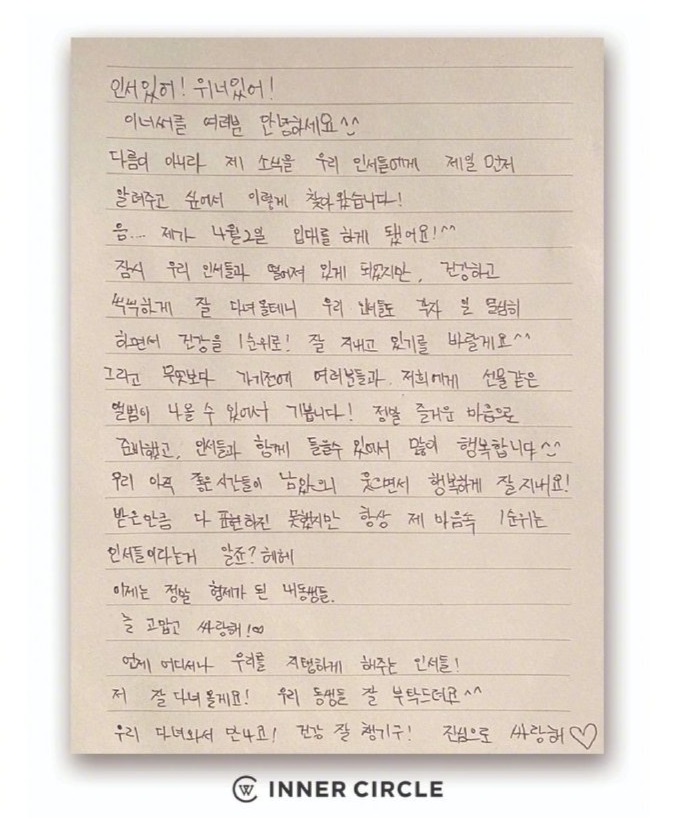 인서있어! 위너있어!
이너써클 여러분 안녕하세요^^
다름이 아니라 제 소식을 우리 인서들에게 제일 먼저
알려주고 싶어서 이렇게 찾아왔습니다!
음... 제가 4월2일 입대를 하게 됐어요!^^
잠시 우리 인서들과 떨어져 있게 되었지만, 건강하고
씩씩하게 잘 다녀올테니 우리 인서들도 각자 일 열심히
하면서 건강을 1순위로! 잘 지내고 있기를 바랄게요^^
그리고 무엇보다 가기전에 여러분들과 저희에게 선물같은
앨범이 나올 수 있어서 기쁩니다! 정말 즐거운 마음으로
준비했고, 인서들과 함께 들을수 있어서 많이 행복합니다^^
우리 아직 좋은시간들이 남았으니 웃으면서 행복하게 잘지내요!
받은만큼 다 표현하진 못했지만 항상 제 마음속 1순위는
인서들이라는거 알죠? 헤헤
이제는 정말 형제가 된 내동생들.
늘 고맙고 싸랑해!♡
언제 어디서나 우리를 지탱하게 해주는 인서들!
저 잘 다녀올게요! 우리 동생들 잘 부탁드려요^^
우리 다녀와서 만나고! 건강 잘 챙기구! 진심으로 싸랑해♡
INNER CIRCLE